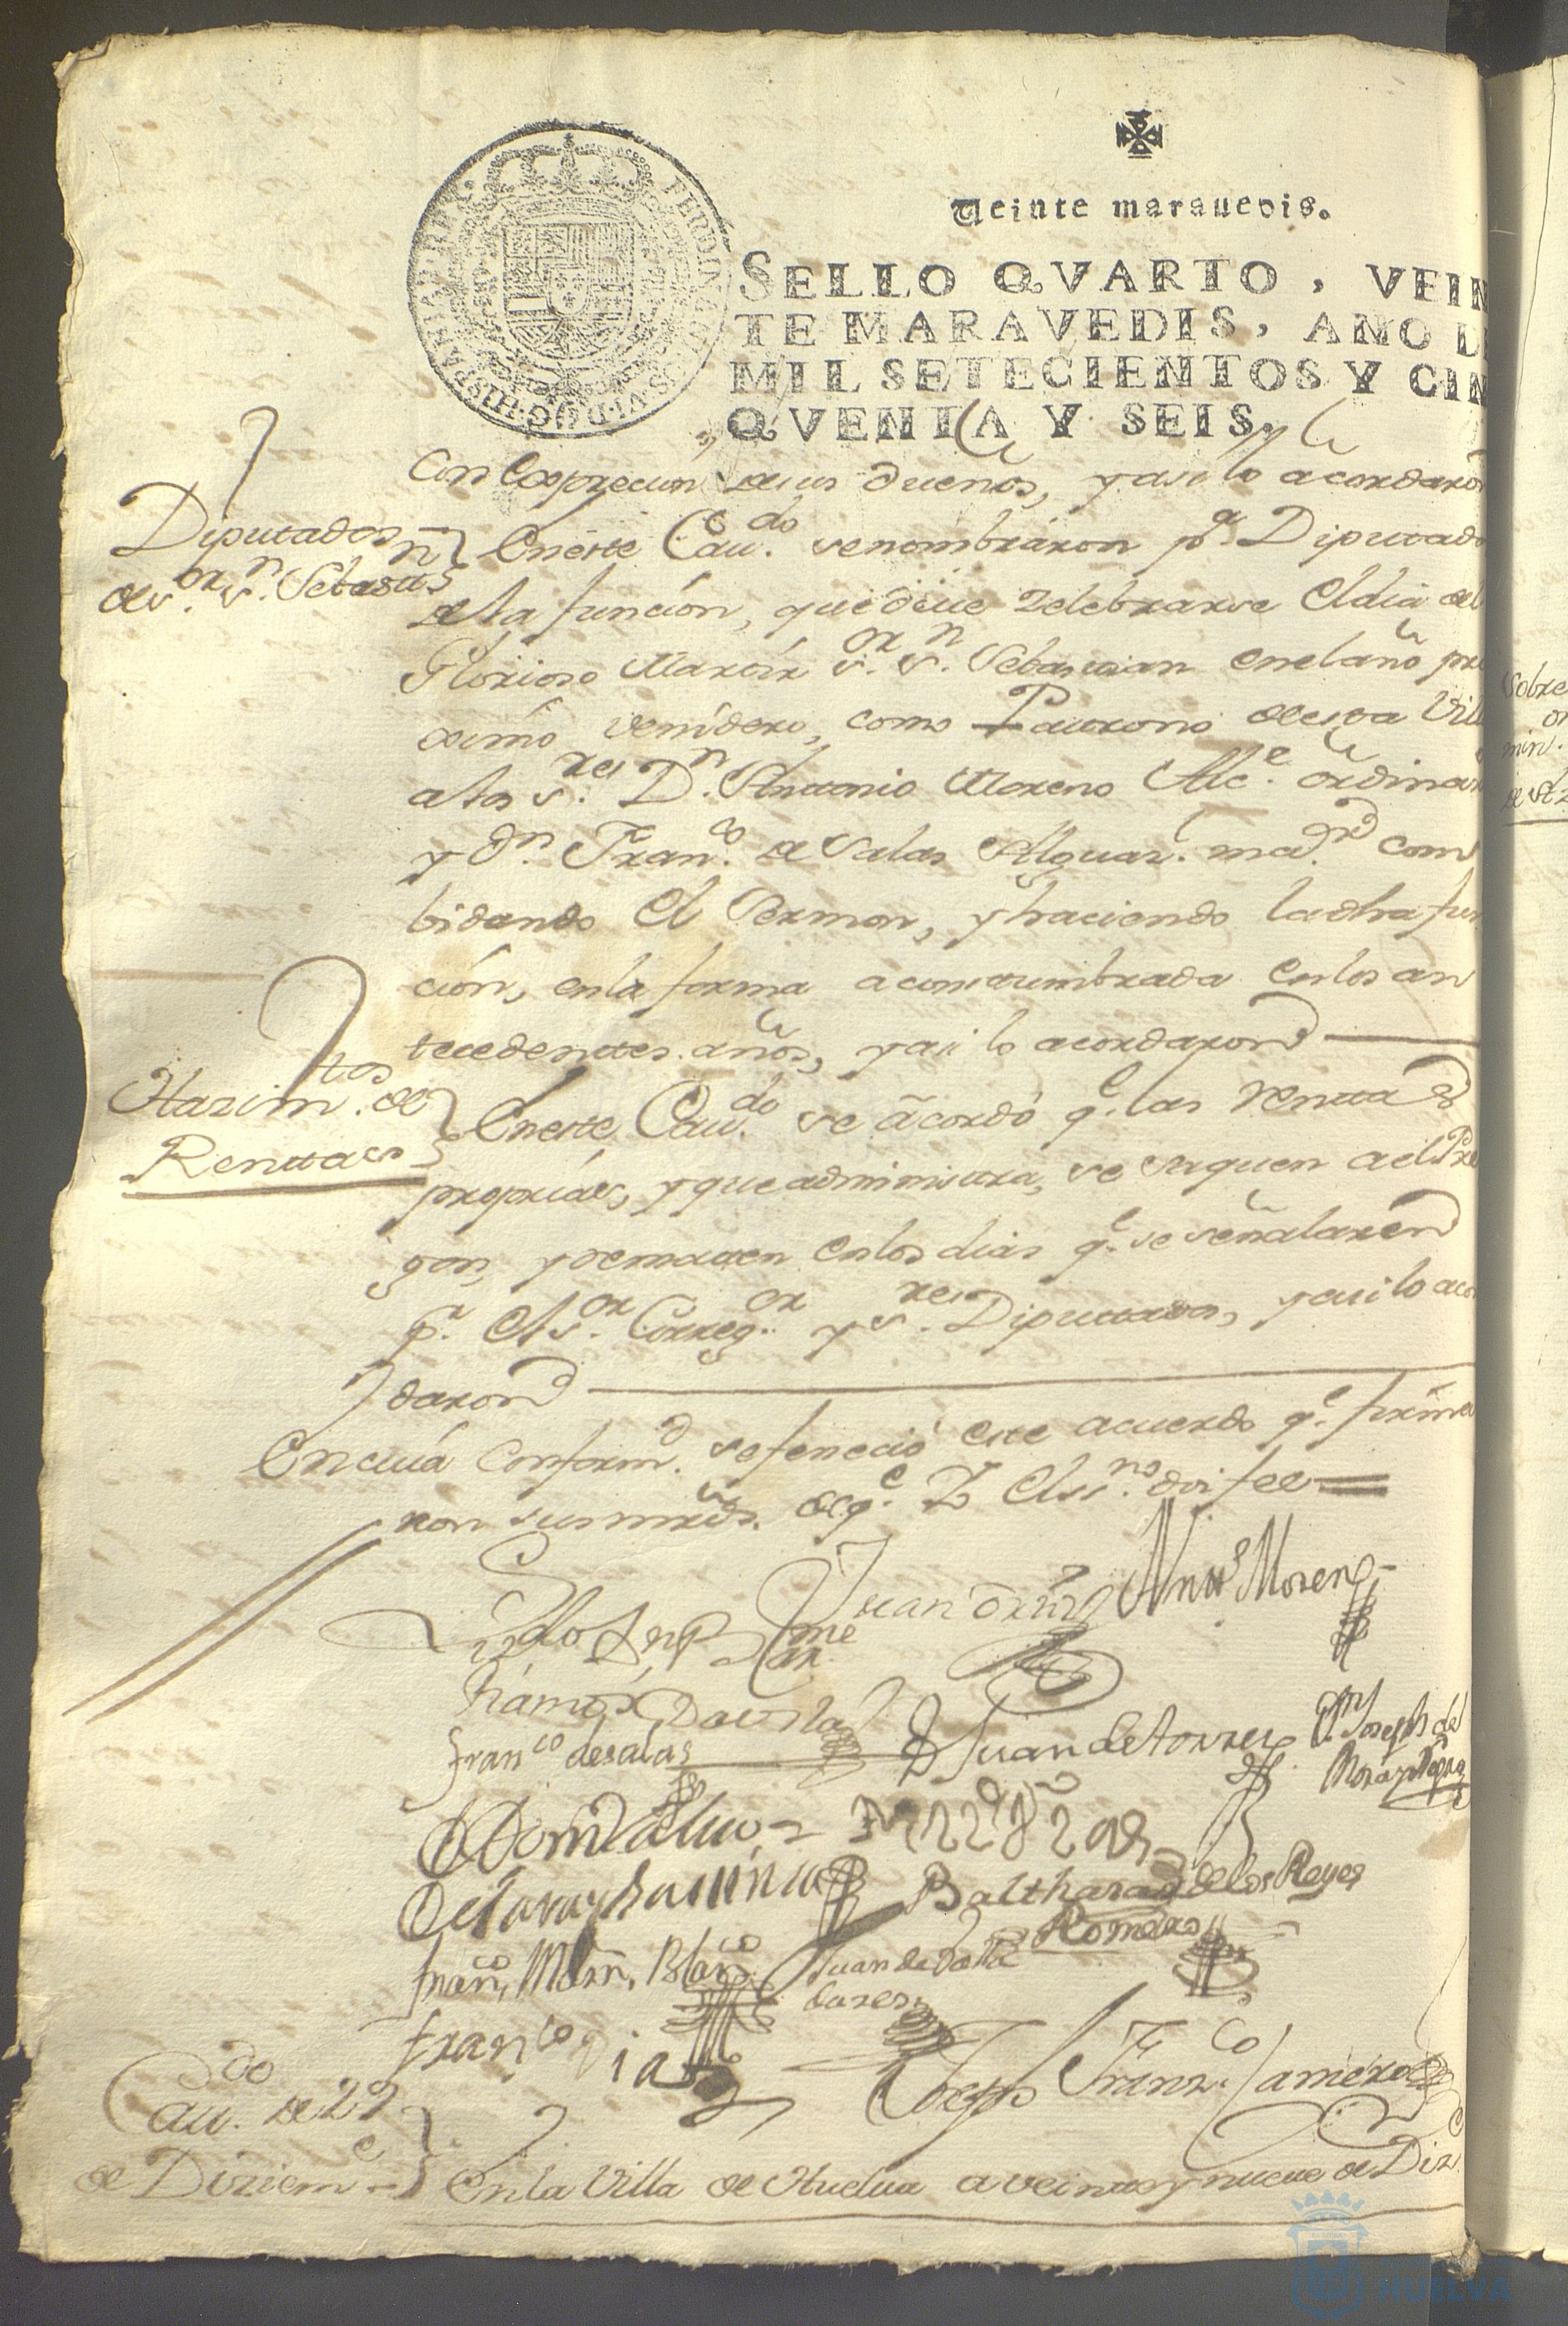 Veinte marauedis.
SELLO QVARTO, VEIN
TE MARAVEDIS, AÑO DE
MIL SETECIENTOS Y CIN
QVENTA Y SEIS.
Con Exprecion de sus dueños, y asi lo acordaron
Diputados
de s.or s.n Sebastn
En este Cau.do se nombraron p.a Diputado
de la función, que deue zelebrarse el dia del
Glorioso Martir s.or s.n Sebastian en el año pro
osimo venidero, como Patrono de esta Vill
a los s.res D.n Antonio Moreno Alc.e ordinar
y d.n Fran.co de Salas Alguaz.l ma.or com
bidando el Sermon, y haciendo la dha fun
ción, en la forma acostumbrada en los an
tecedentes años, y asi lo acordaron
Hazim.tos de
Renttas
En este Cau.do se acordó q.e las Renttas
proprias, y que administra, se saquen a el Pre
gon, y rematen en los dias q.e se señalaren
p.r el s.or Correg.or y s.res Diputtados, y asi lo acor
daron
En cuia Conform.d se feneció este acuerdo q.e firma
ron sus mrds. de q.e Yo el ss.no doi fee
Juan Ortiz Antto Moreno
Ramos Davila
Fran.co de salas Juan de torres D.n Joseph del
Balthasar de los Reyes
Romero
Fran.co Mrn. Blanco Juan de
Fran.co Diaz
Joseph Franz.co Camero
Cau.do de 29
de Diziem.e
En la Villa de Huelua a veinte y nueue de Diz.e
HUELVA